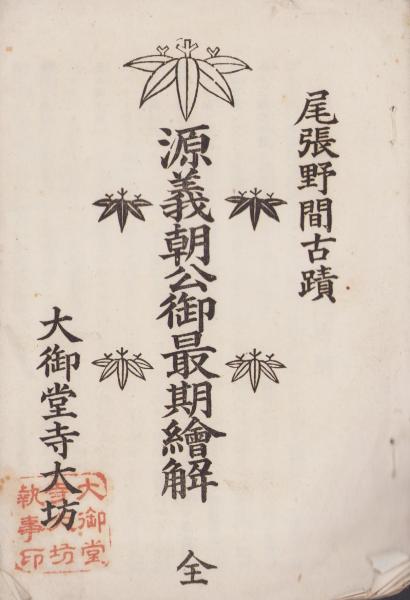 尾張野間古蹟
源義朝公御最期繪解 全
大御堂寺大坊
大御堂
寺大坊
執事印